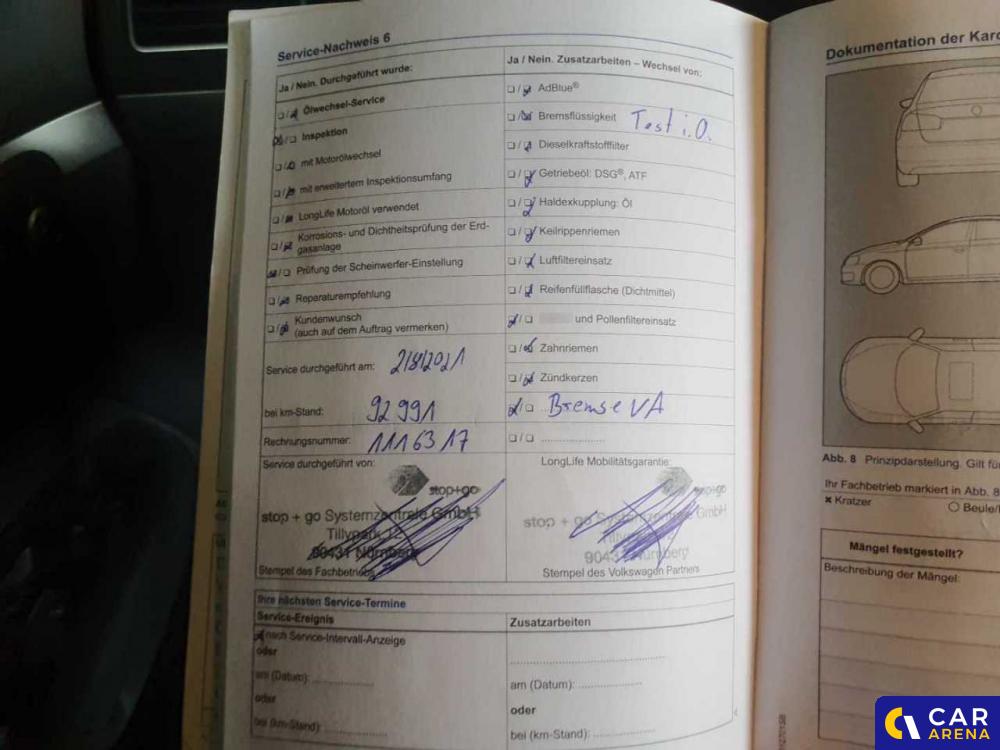 Service-Nachweis 6
Ja / Nein. Durchgeführt wurde:
Ölwechsel-Service
Inspektion
mit Motorölwechsel
mit erweitertem Inspektionsumfang
LongLife Motoröl verwendet
Korrosions- und Dichtheitsprüfung der Erd-
gasanlage
Prüfung der Scheinwerfer-Einstellung
Reparaturempfehlung
Kundenwunsch
(auch auf dem Auftrag vermerken)
Service durchgeführt am: 2/8/2021
bei km-Stand: 92 991
Rechnungsnummer: 1116317
Service durchgeführt von:
stop+go
stop + go Systemzentrale GmbH
Tillypark 12
90431 Nürnberg
Stempel des Fachbetriebs
Ja / Nein. Zusatzarbeiten – Wechsel von:
AdBlue®
Bremsflüssigkeit Test i.O.
Dieselkraftstofffilter
Getriebeöl: DSG®, ATF
Haldexkupplung: Öl
Keilrippenriemen
Luftfiltereinsatz
Reifenfüllflasche (Dichtmittel)
und Pollenfiltereinsatz
Zahnriemen
Zündkerzen
Bremse VA
LongLife Mobilitätsgarantie:
stop+go
stop + go Systemzentrale GmbH
90431 Nürnberg
Stempel des Volkswagen Partners
Ihre nächsten Service-Termine
Service-Ereignis
nach Service-Intervall-Anzeige
oder
am (Datum):
oder
bei (km-Stand):
Zusatzarbeiten
am (Datum):
oder
bei (km-Stand):
Dokumentation der Karo
Abb. 8 Prinzipdarstellung. Gilt fü
Ihr Fachbetrieb markiert in Abb. 8
× Kratzer
Beule/
Mängel festgestellt?
Beschreibung der Mängel:
CAR
ARENA